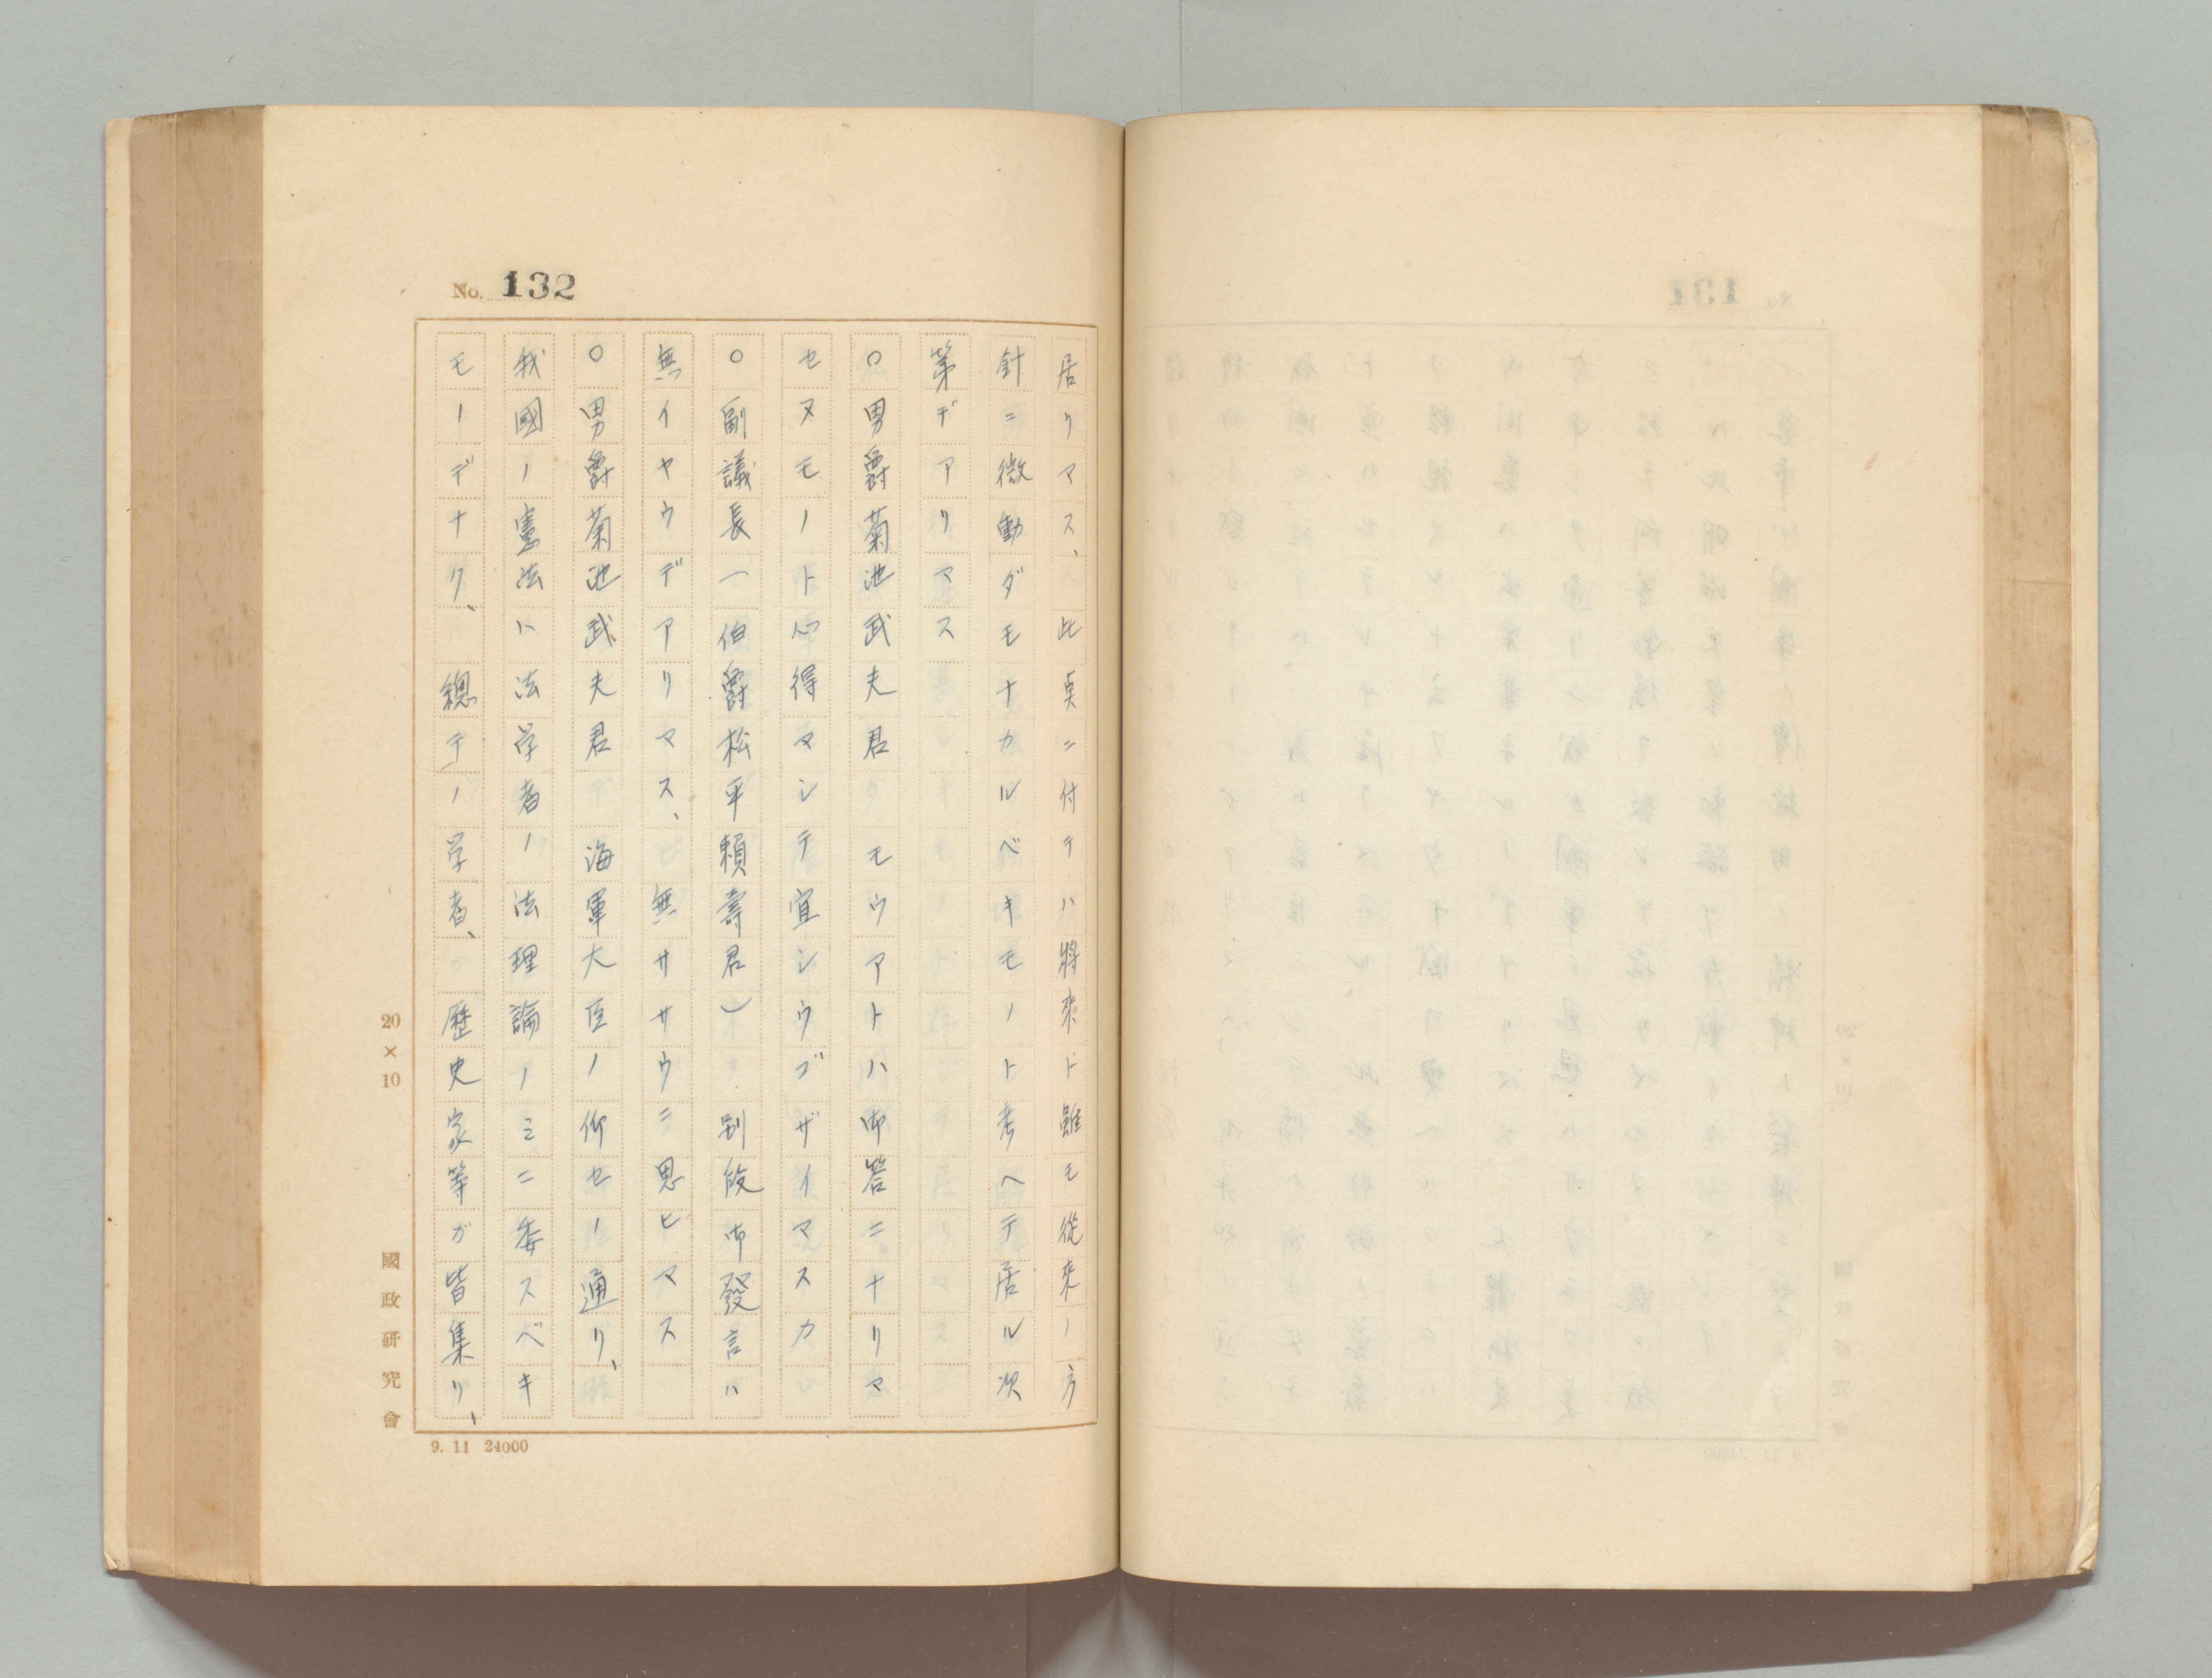 No. 132
居リマス、此点ニ付テハ將來ト雖モ從來ノ方
針ニ微動ダモナカルベキモノト考ヘテ居ル次
第デアリマス
○男爵菊池武夫君　モウアトハ御答ニナリマ
セヌモノト心得マシテ宜シウゴザイマスカ
○副議長（伯爵松平頼壽君）　別段御發言ハ
無イヤウデアリマス、無ササウニ思ヒマス
○男爵菊池武夫君　海軍大臣ノ仰セノ通リ、
我國ノ憲法ハ法学者ノ法理論ノミニ委スベキ
モノデナク、總テノ学者、歴史家等ガ皆集リ、
20×10
國政研究會
9. 11 24000